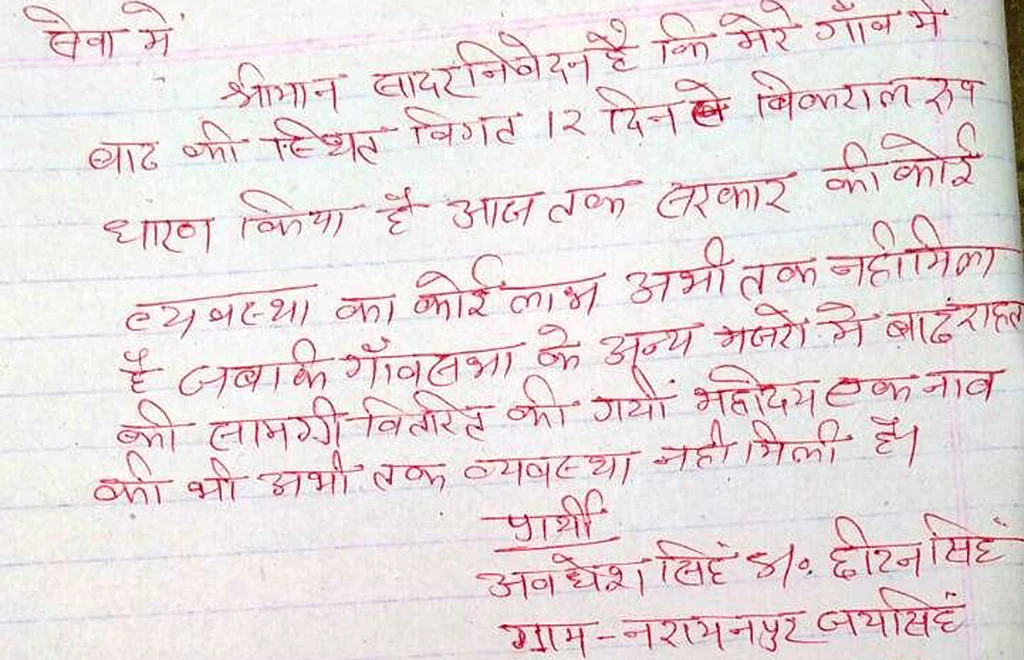 सेवा में
श्रीमान सादर निवेदन है कि मेरे गाँव मे
बाढ की स्थित विगत 12 दिन से विकराल रुप
धारण किया है आज तक सरकार की कोई
व्यवस्था का कोई लाभ अभी तक नही मिला
है जबकि गाँवसभा के अन्य मजरो मे बाढं राहत
की सामग्री वितरित की गयी महोदय एक नाव
की भी अभी तक व्यवस्था नही मिली है।
प्रार्थी
अवधेश सिहं S/o छीटन सिहं
ग्राम - नरायनपुर जयसिहं